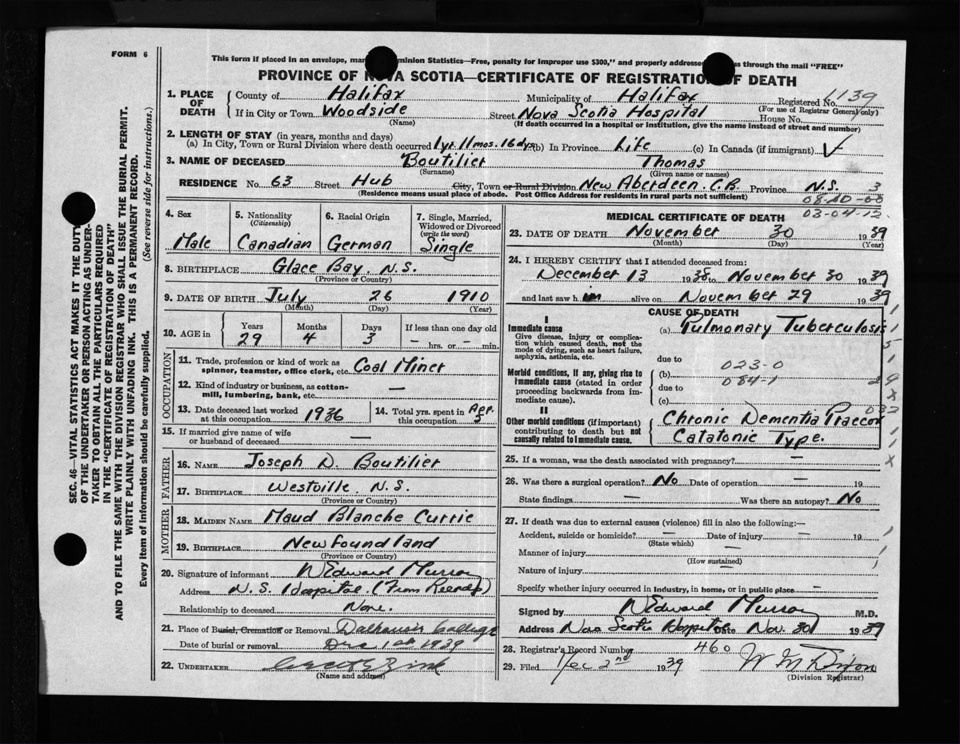 FORM 6
This form if placed in an envelope, mar minion Statistics—Free, penalty for improper use $300," and properly addresse ss through the mail "FREE"
PROVINCE OF NOVA SCOTIA—CERTIFICATE OF REGISTRATION OF DEATH
1. PLACE OF DEATH County of Halifax Municipality of Halifax Registered No. 1139
(For use of Registrar General only)
If in City or Town Woodside Street Nova Scotia Hospital House No.
(Name) (If death occurred in a hospital or institution, give the name instead of street and number)
2. LENGTH OF STAY (in years, months and days)
(a) In City, Town or Rural Division where death occurred 1yr. 11 mos. 16 dys (b) In Province Life (c) In Canada (if immigrant)
3. NAME OF DECEASED Boutilier Thomas
(Surname) (Given name or names)
RESIDENCE No. 63 Street Hub City, Town or Rural Division New Aberdeen C.B. Province N.S. 3
(Residence means usual place of abode. Post Office Address for residents in rural parts not sufficient)
03-04-12
SEC. 46—VITAL STATISTICS ACT MAKES IT THE DUTY
OF THE UNDERTAKER OR PERSON ACTING AS UNDER-
TAKER TO OBTAIN ALL THE PARTICULARS REQUIRED
IN THE "CERTIFICATE OF REGISTRATION OF DEATH"
AND TO FILE THE SAME WITH THE DIVISION REGISTRAR WHO SHALL ISSUE THE BURIAL PERMIT.
WRITE PLAINLY WITH UNFADING INK. THIS IS A PERMANENT RECORD.
Every item of information should be carefully supplied. (See reverse side for instructions.)
4. Sex 5. Nationality (Citizenship) 6. Racial Origin 7. Single, Married, Widowed or Divorced (write the word)
Male Canadian German Single
8. BIRTHPLACE Glace Bay, N.S.
(Province or Country)
9. DATE OF BIRTH July 26 1910
(Month) (Day) (Year)
10. AGE in Years Months Days If less than one day old
29 4 3 — hrs. or — min.
OCCUPATION
11. Trade, profession or kind of work as spinner, teamster, office clerk, etc. Coal Miner
12. Kind of industry or business, as cotton-mill, lumbering, bank, etc. —
13. Date deceased last worked at this occupation 1936 14. Total yrs. spent in this occupation 5
15. If married give name of wife or husband of deceased —
FATHER
16. NAME Joseph D. Boutilier
17. BIRTHPLACE Westville, N.S.
(Province or Country)
MOTHER
18. MAIDEN NAME Maud Blanche Currie
19. BIRTHPLACE Newfoundland
(Province or Country)
20. Signature of informant Edward Murray
Address N.S. Hospital (From Records)
Relationship to deceased None.
21. Place of Burial, Cremation or Removal Dalhousie College
Date of burial or removal Dec 1st 1939
22. UNDERTAKER
(Name and address)
MEDICAL CERTIFICATE OF DEATH
23. DATE OF DEATH November 30 1939
(Month) (Day) (Year)
24. I HEREBY CERTIFY that I attended deceased from:
December 13 1938 to November 30 1939
and last saw him alive on November 29 1939
CAUSE OF DEATH
I
Immediate cause (a) Pulmonary Tuberculosis
Give disease, injury or complication which caused death, not the mode of dying, such as heart failure, asphyxia, asthenia, etc.
due to
Morbid conditions, if any, giving rise to immediate cause (stated in order proceeding backwards from immediate cause).
(b) 023-0
due to 084-1
(c)
II
Other morbid conditions (if important) contributing to death but not causally related to immediate cause.
Chronic Dementia Praecox
Catatonic Type.
25. If a woman, was the death associated with pregnancy? —
26. Was there a surgical operation? No Date of operation — 19
State findings — Was there an autopsy? No
27. If death was due to external causes (violence) fill in also the following:—
Accident, suicide or homicide? — Date of injury — 19
(State which)
Manner of injury —
(How sustained)
Nature of injury —
Specify whether injury occurred in industry, in home, or in public place —
Signed by Edward Murray M.D.
Address Nova Scotia Hospital Nov. 30 1939
28. Registrar's Record Number 460
29. Filed Dec 2nd 1939
(Division Registrar)